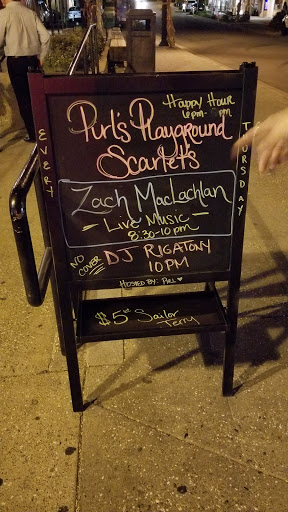 Happy Hour
6pm- pm
Purl's Playground
Scarlet's
EVERY
THURSDAY
Zach MacLachlan
- Live Music -
8:30-10pm
NO COVER
DJ RIGATONY
10PM
HOSTED BY: PURL
$5 Sailor
Terry